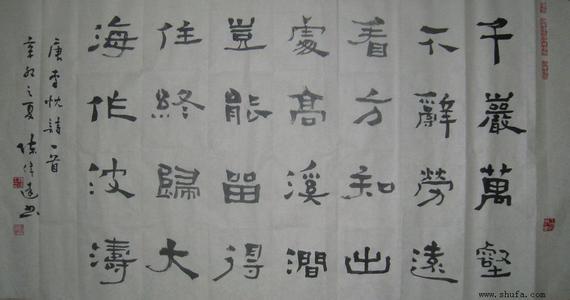 千巖萬壑
不辭勞遠
看方知出
處高溪澗
豈能留得
住終歸大
海作波濤
唐李忱詩一首
辛卯之夏
www.shufa.com